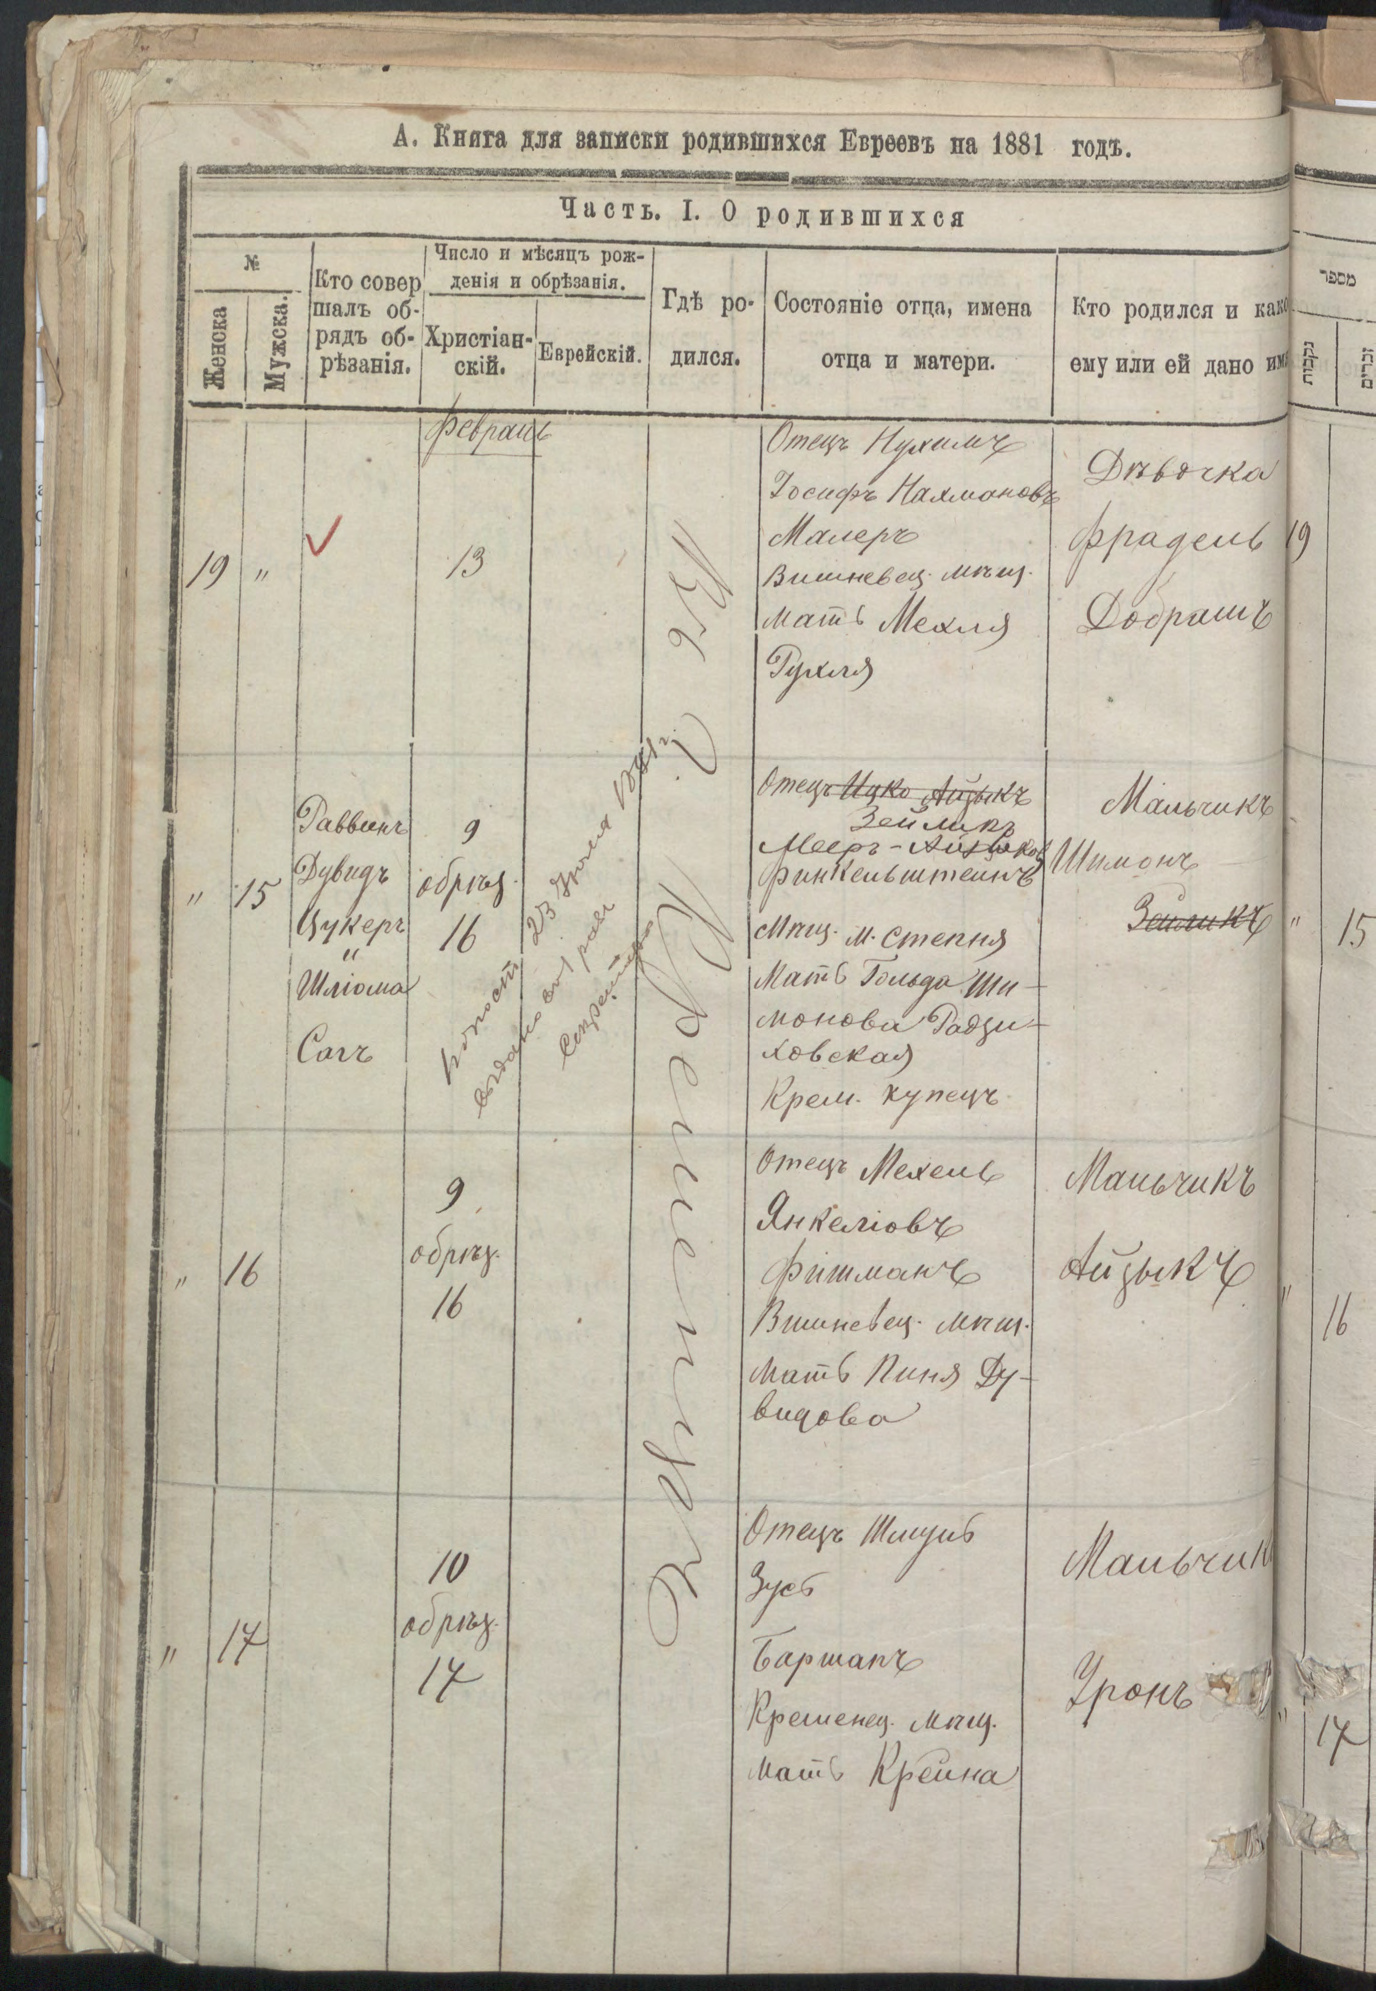 А. Книга для записки родившихся Евреевъ на 1881 годъ.
Часть. I. О родившихся
№
Женска
Мужска.
Кто совер
шалъ об-
рядъ об-
рѣзанія.
Число и мѣсяцъ рож-
денія и обрѣзанія.
Христіан-
скій.
Еврейскій.
Гдѣ ро-
дился.
Состояніе отца, имена
отца и матери.
Кто родился и како
ему или ей дано им
Февраль
19 "
13
Отецъ Нухимъ
Іосифъ Нахмановъ
Малеръ
Вишневец. мѣщ.
Мать Мехля
Рухля
Дѣвочка
Фрадель
Добрашъ
В г. Кременцѣ
" 15
Раввинъ
Дувидъ
Цукеръ
"
Шліома
Сагъ
9
обрѣз.
16
23 Іюля 1881 г.
Отецъ Ицко Айзыкъ
Зейликъ
Мееръ-Айзыковъ
Финкельштейнъ
Мѣщ. м. Степня
Мать Гольда Ши-
монова Радзи-
ховская
Крем. купецъ
Мальчикъ
Шимонъ
Зейликъ
" 16
9
обрѣз.
16
Отецъ Мехель
Янкеліовъ
Фишманъ
Вишневец. мѣщ.
Мать Пиня Ду-
видова
Мальчикъ
Айзыкъ
" 17
10
обрѣз.
17
Отецъ Шмуль
Зусь
Баршапъ
Кременец. мѣщ.
Мать Крейна
Мальчик
Уронъ
מספר
נקבות
זכרים
19
" 15
" 16
" 17